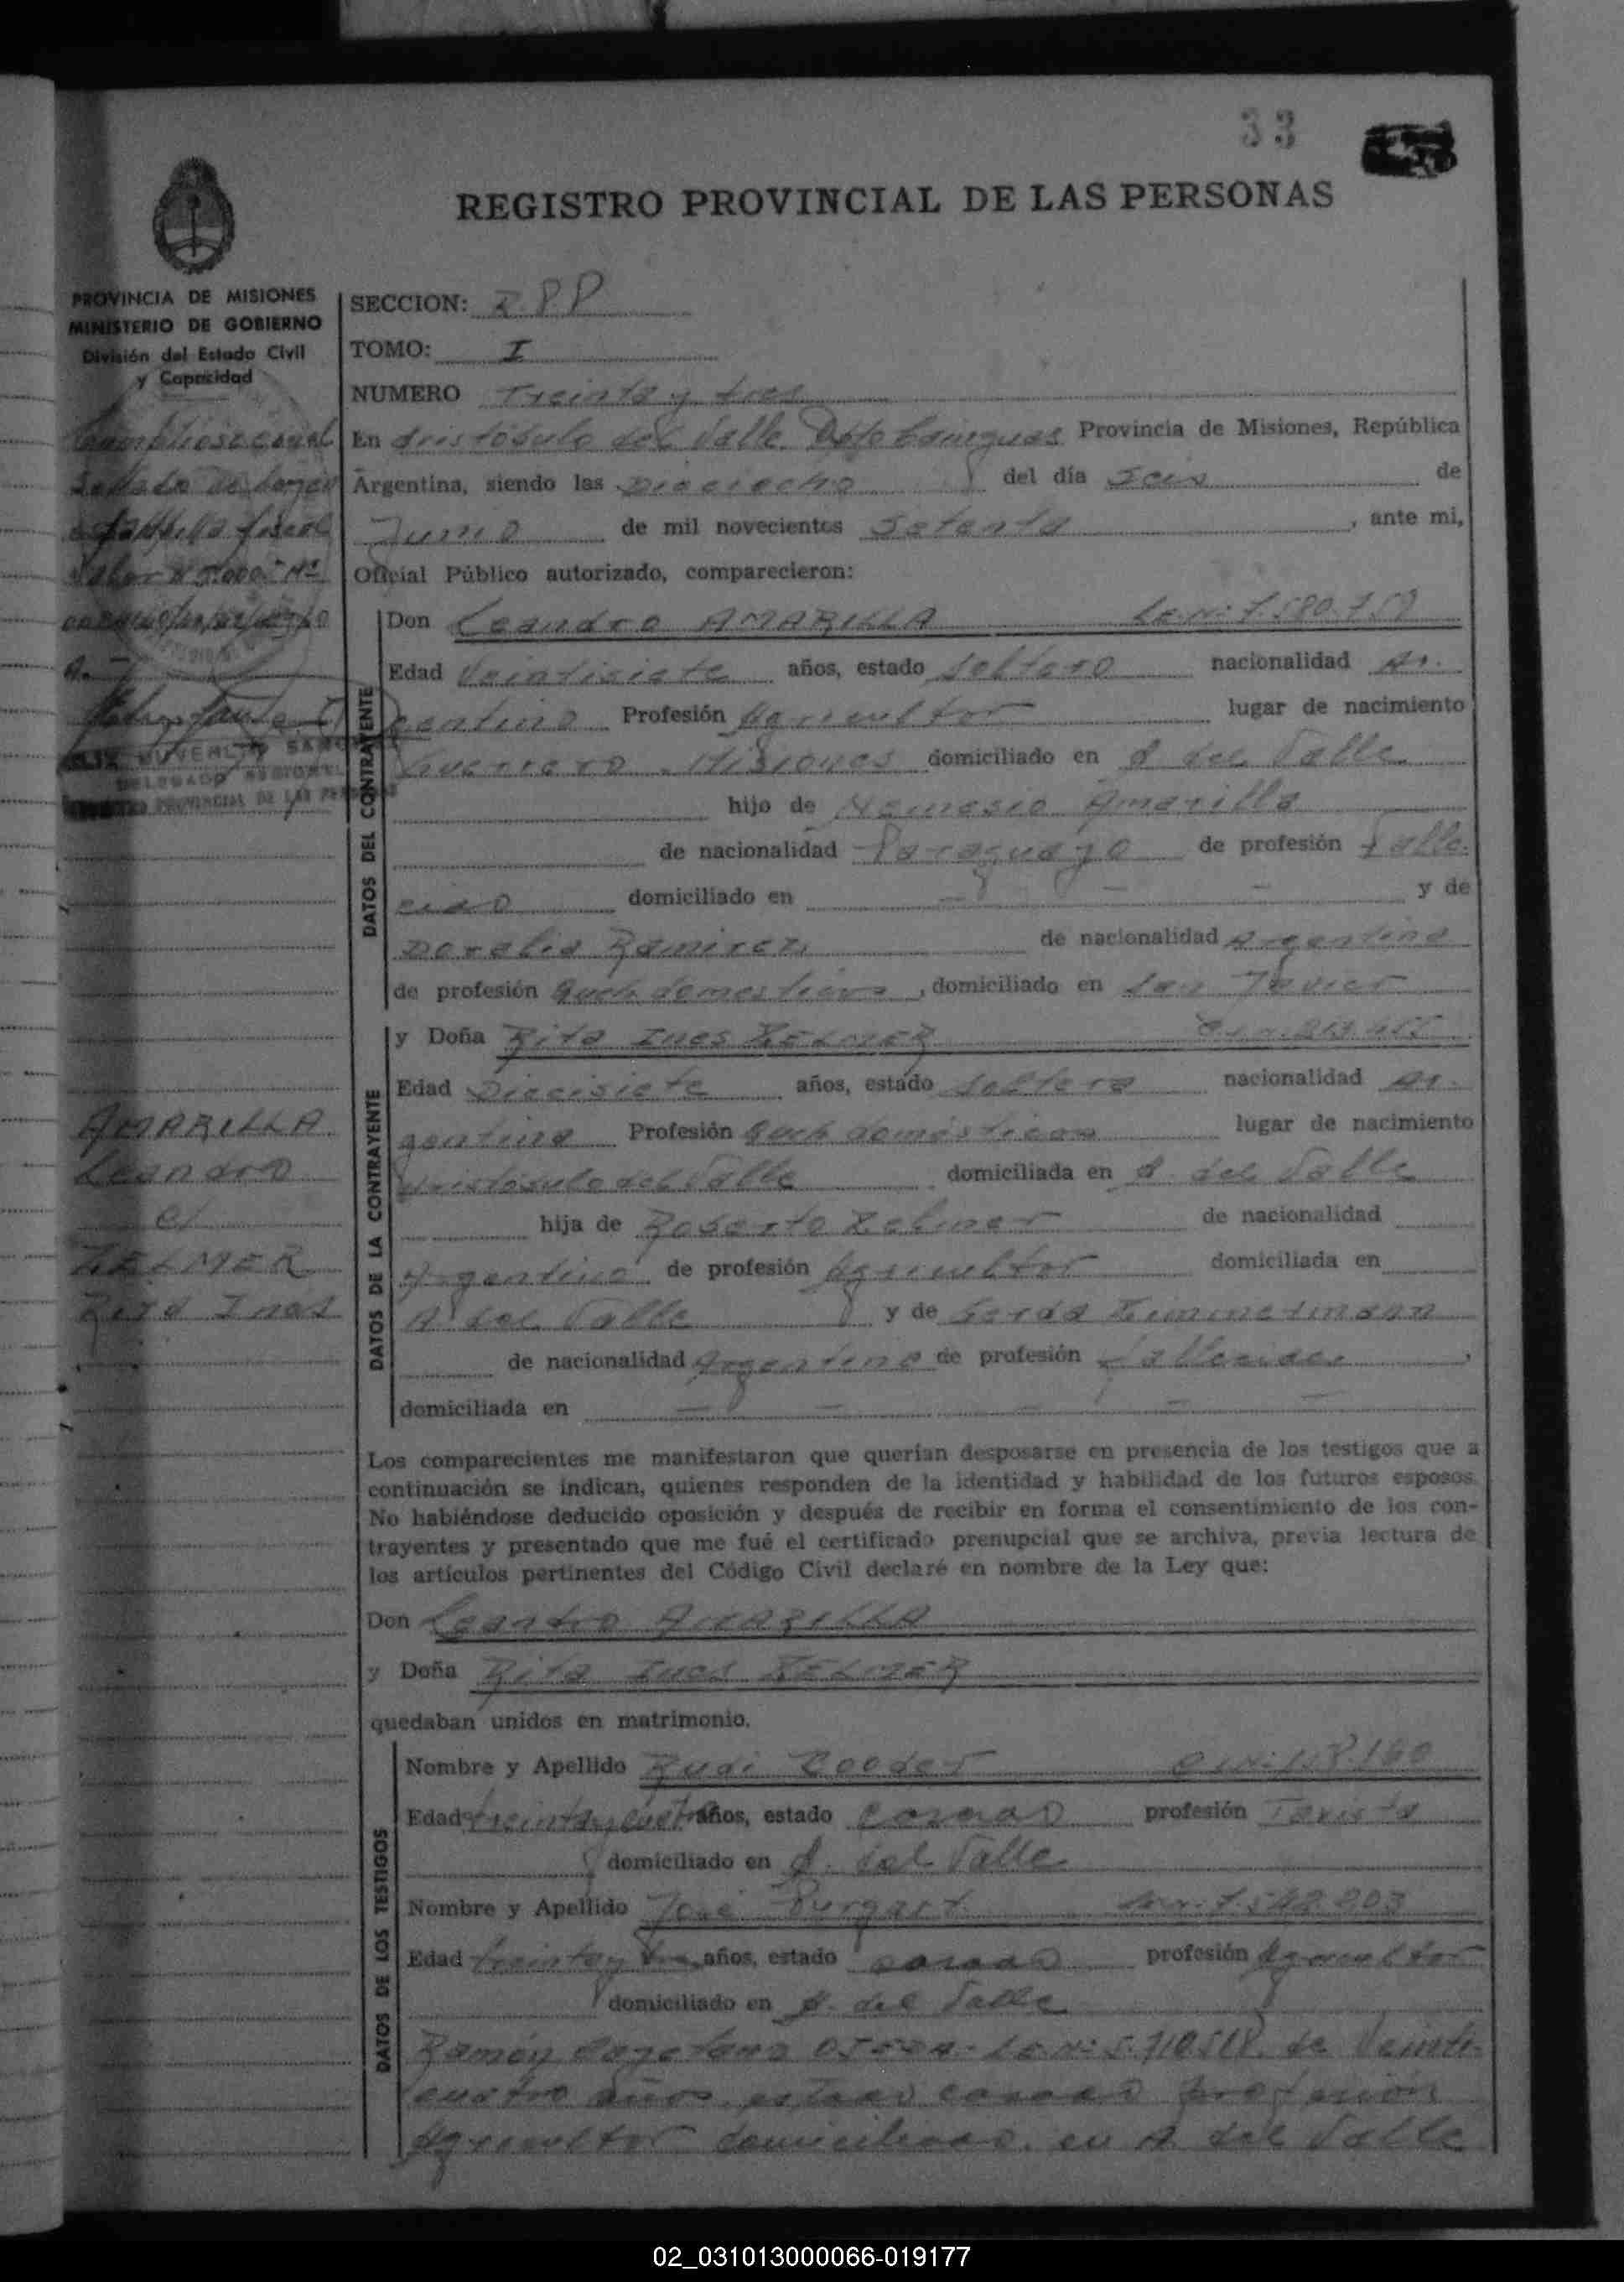 33
REGISTRO PROVINCIAL DE LAS PERSONAS
PROVINCIA DE MISIONES
MINISTERIO DE GOBIERNO
División del Estado Civil
y Capacidad
SECCION: R.P.P
TOMO: I
NUMERO Treinta y tres
En Aristóbulo del Valle Dpto Cainguas Provincia de Misiones, República
Argentina, siendo las Dieciocho del día Seis de
Junio de mil novecientos Setenta, ante mi,
Oficial Público autorizado, comparecieron:
DATOS DEL CONTRAYENTE
Don Leandro AMARILLA L.E.Nº: 7.580.759
Edad Veintisiete años, estado Soltero nacionalidad Ar-
gentino Profesión Agricultor lugar de nacimiento
Guerrero Misiones domiciliado en A del Valle
hijo de Nemesio Amarilla
de nacionalidad Paraguayo de profesión Falle-
cido domiciliado en - - - y de
Dorelia Ramirez de nacionalidad Argentina
de profesión Queh domesticos, domiciliado en San Javier
DATOS DE LA CONTRAYENTE
y Doña Rita Ines ZELMER
Edad Diecisiete años, estado Soltera nacionalidad Ar-
gentina Profesión Queh domésticos lugar de nacimiento
Aristóbulo del Valle domiciliada en A. del Valle
hija de Roberto Zelmer de nacionalidad
Argentino de profesión Agricultor domiciliada en
A del Valle y de Gerda Zimmermann
de nacionalidad Argentina de profesión Fallecida,
domiciliada en - - - - -
Los comparecientes me manifestaron que querían desposarse en presencia de los testigos que a
continuación se indican, quienes responden de la identidad y habilidad de los futuros esposos.
No habiéndose deducido oposición y después de recibir en forma el consentimiento de los con-
trayentes y presentado que me fué el certificado prenupcial que se archiva, previa lectura de
los artículos pertinentes del Código Civil declaré en nombre de la Ley que:
Don Leandro AMARILLA
y Doña Rita Ines ZELMER
quedaban unidos en matrimonio.
DATOS DE LOS TESTIGOS
Nombre y Apellido Rudi
Edad treinta y años, estado casado profesión Taxista
domiciliado en A. del Valle
Nombre y Apellido José L.E.Nº: 7.542.203
Edad treinta y años, estado casado profesión Agricultor
domiciliado en A. del Valle
Ramón Cayetano L.E.Nº: de Veinti-
cuatro años estado casado profesión
Agricultor domiciliado en A. del Valle
sellado de
estampilla fiscal
Valor
DELEGADO REGIONAL
REGISTRO PROVINCIAL DE LAS PERSONAS
AMARILLA
Leandro
c/
ZELMER
Rita Ines
02_031013000066-019177